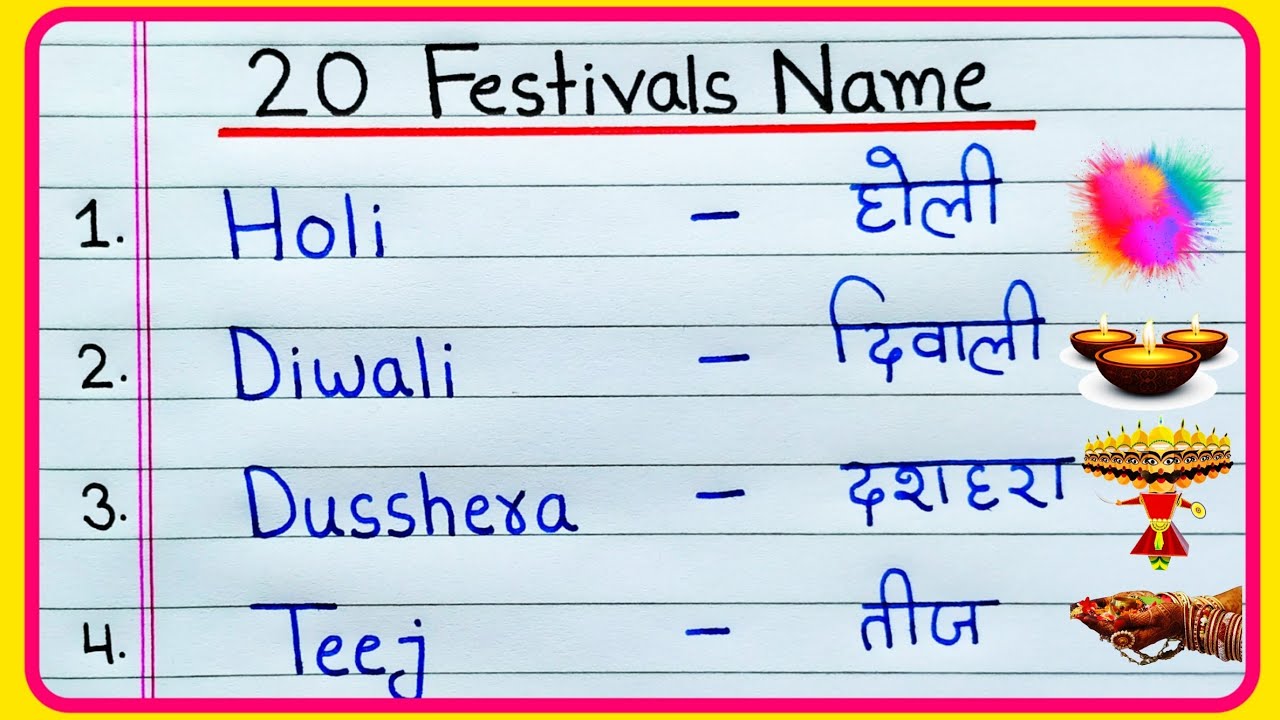 20 Festivals Name
1. Holi - होली
2. Diwali - दिवाली
3. Dusshera - दशहरा
4. Teej - तीज